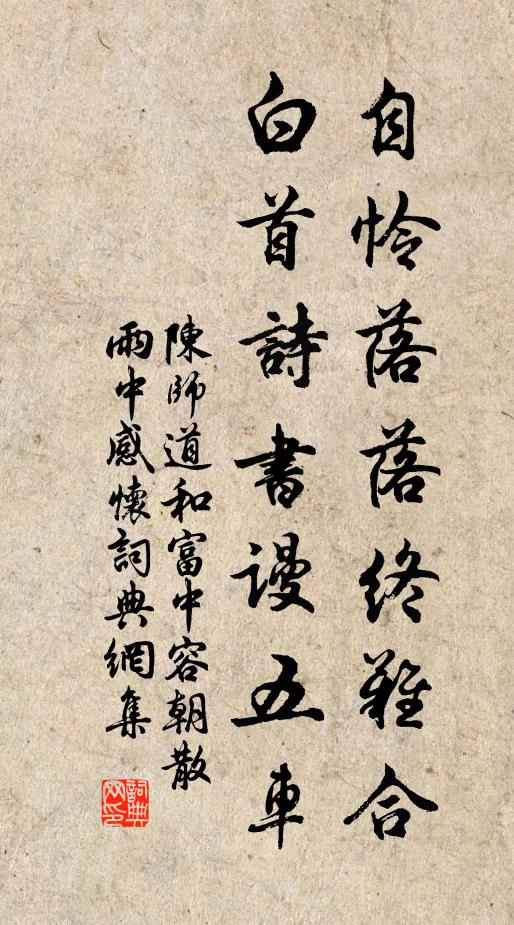 自怜落落终難合
白首詩書謾五車
陳師道和富中容朝散
雨中感懷詞典網集
詞典網印